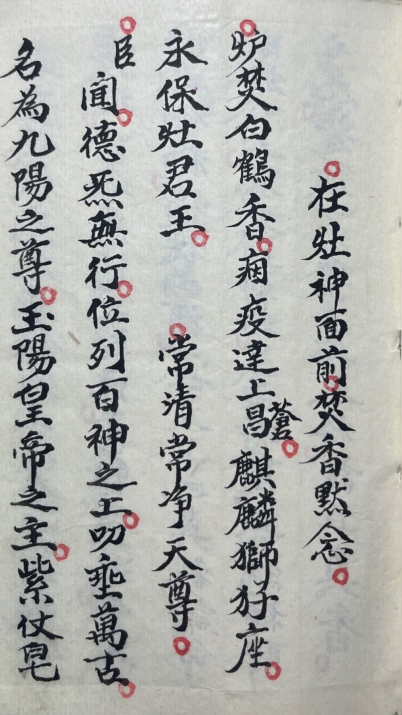 在灶神面前焚香默念
炉焚白鶴香痼疫達上昌蒼麒麟獅狩座
永保灶君王 常清常净天尊
臣聞德炁無行位列百神之上叨垂萬古
名為九陽之尊玉陽皇帝之主紫仗皂